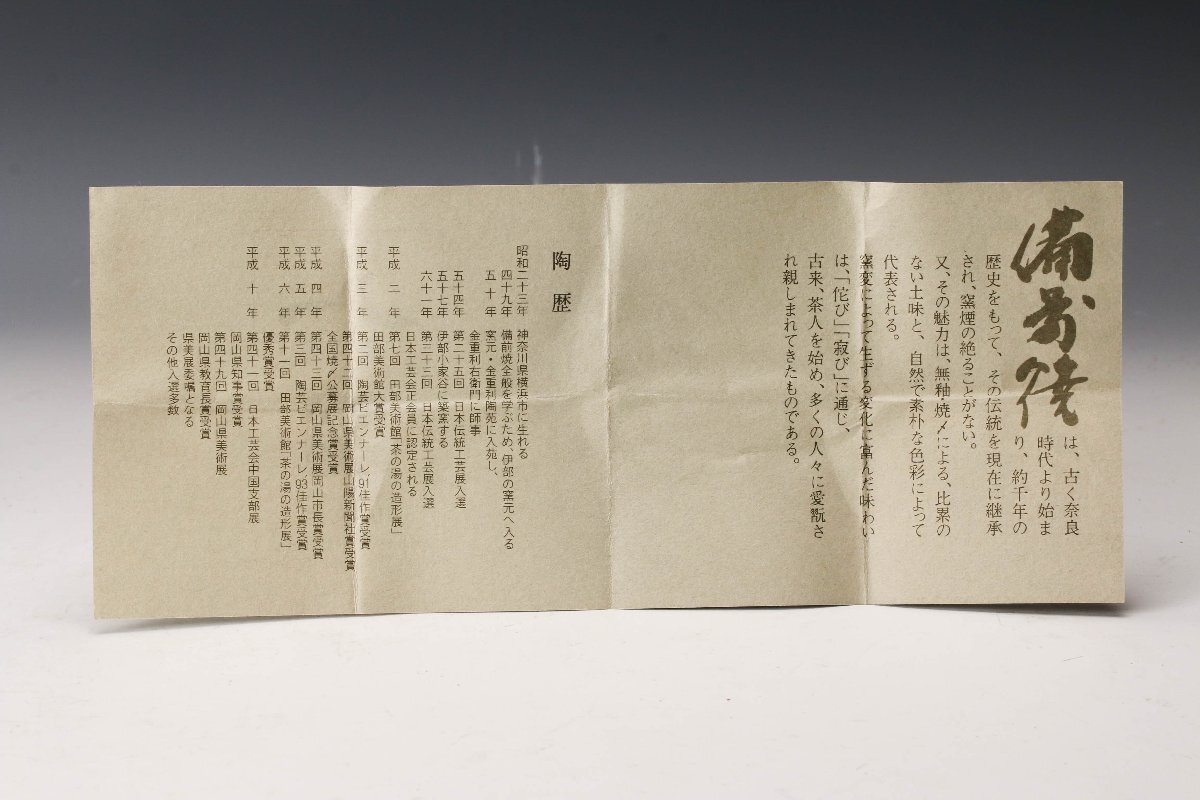 備前焼
は、古く奈良
時代より始ま
り、約千年の
歴史をもって、その伝統を現在に継承
され、窯煙の絶ることがない。
又、その魅力は、無釉焼〆による、比累の
ない土味と、自然で素朴な色彩によって
代表される。
窯変によって生ずる変化に富んだ味わい
は、「侘び」「寂び」に通じ、
古来、茶人を始め、多くの人々に愛翫さ
れ親しまれてきたものである。
陶歴
昭和二十三年 神奈川県横浜市に生れる
四十九年 備前焼全般を学ぶため、伊部の窯元へ入る
五十年 窯元・金重利陶苑に入苑し、
金重利右衛門に師事
五十四年 第二十五回 日本伝統工芸展入選
五十七年 伊部小家谷に築窯する
六十一年 第三十三回 日本伝統工芸展入選
日本工芸会正会員に認定される
平成二年 第七回 田部美術館「茶の湯の造形展」
田部美術館大賞受賞
平成三年 第二回 陶芸ビエンナーレ91佳作賞受賞
第四十二回 岡山県美術展山陽新聞社賞受賞
全国焼〆公募展記念賞受賞
平成四年 第四十三回 岡山県美術展岡山市長賞受賞
平成五年 第三回 陶芸ビエンナーレ93佳作賞受賞
平成六年 第十一回 田部美術館「茶の湯の造形展」
優秀賞受賞
平成十年 第四十一回 日本工芸会中国支部展
岡山県知事賞受賞
第四十九回 岡山県美術展
岡山県教育長賞受賞
県美展委嘱となる
その他入選多数